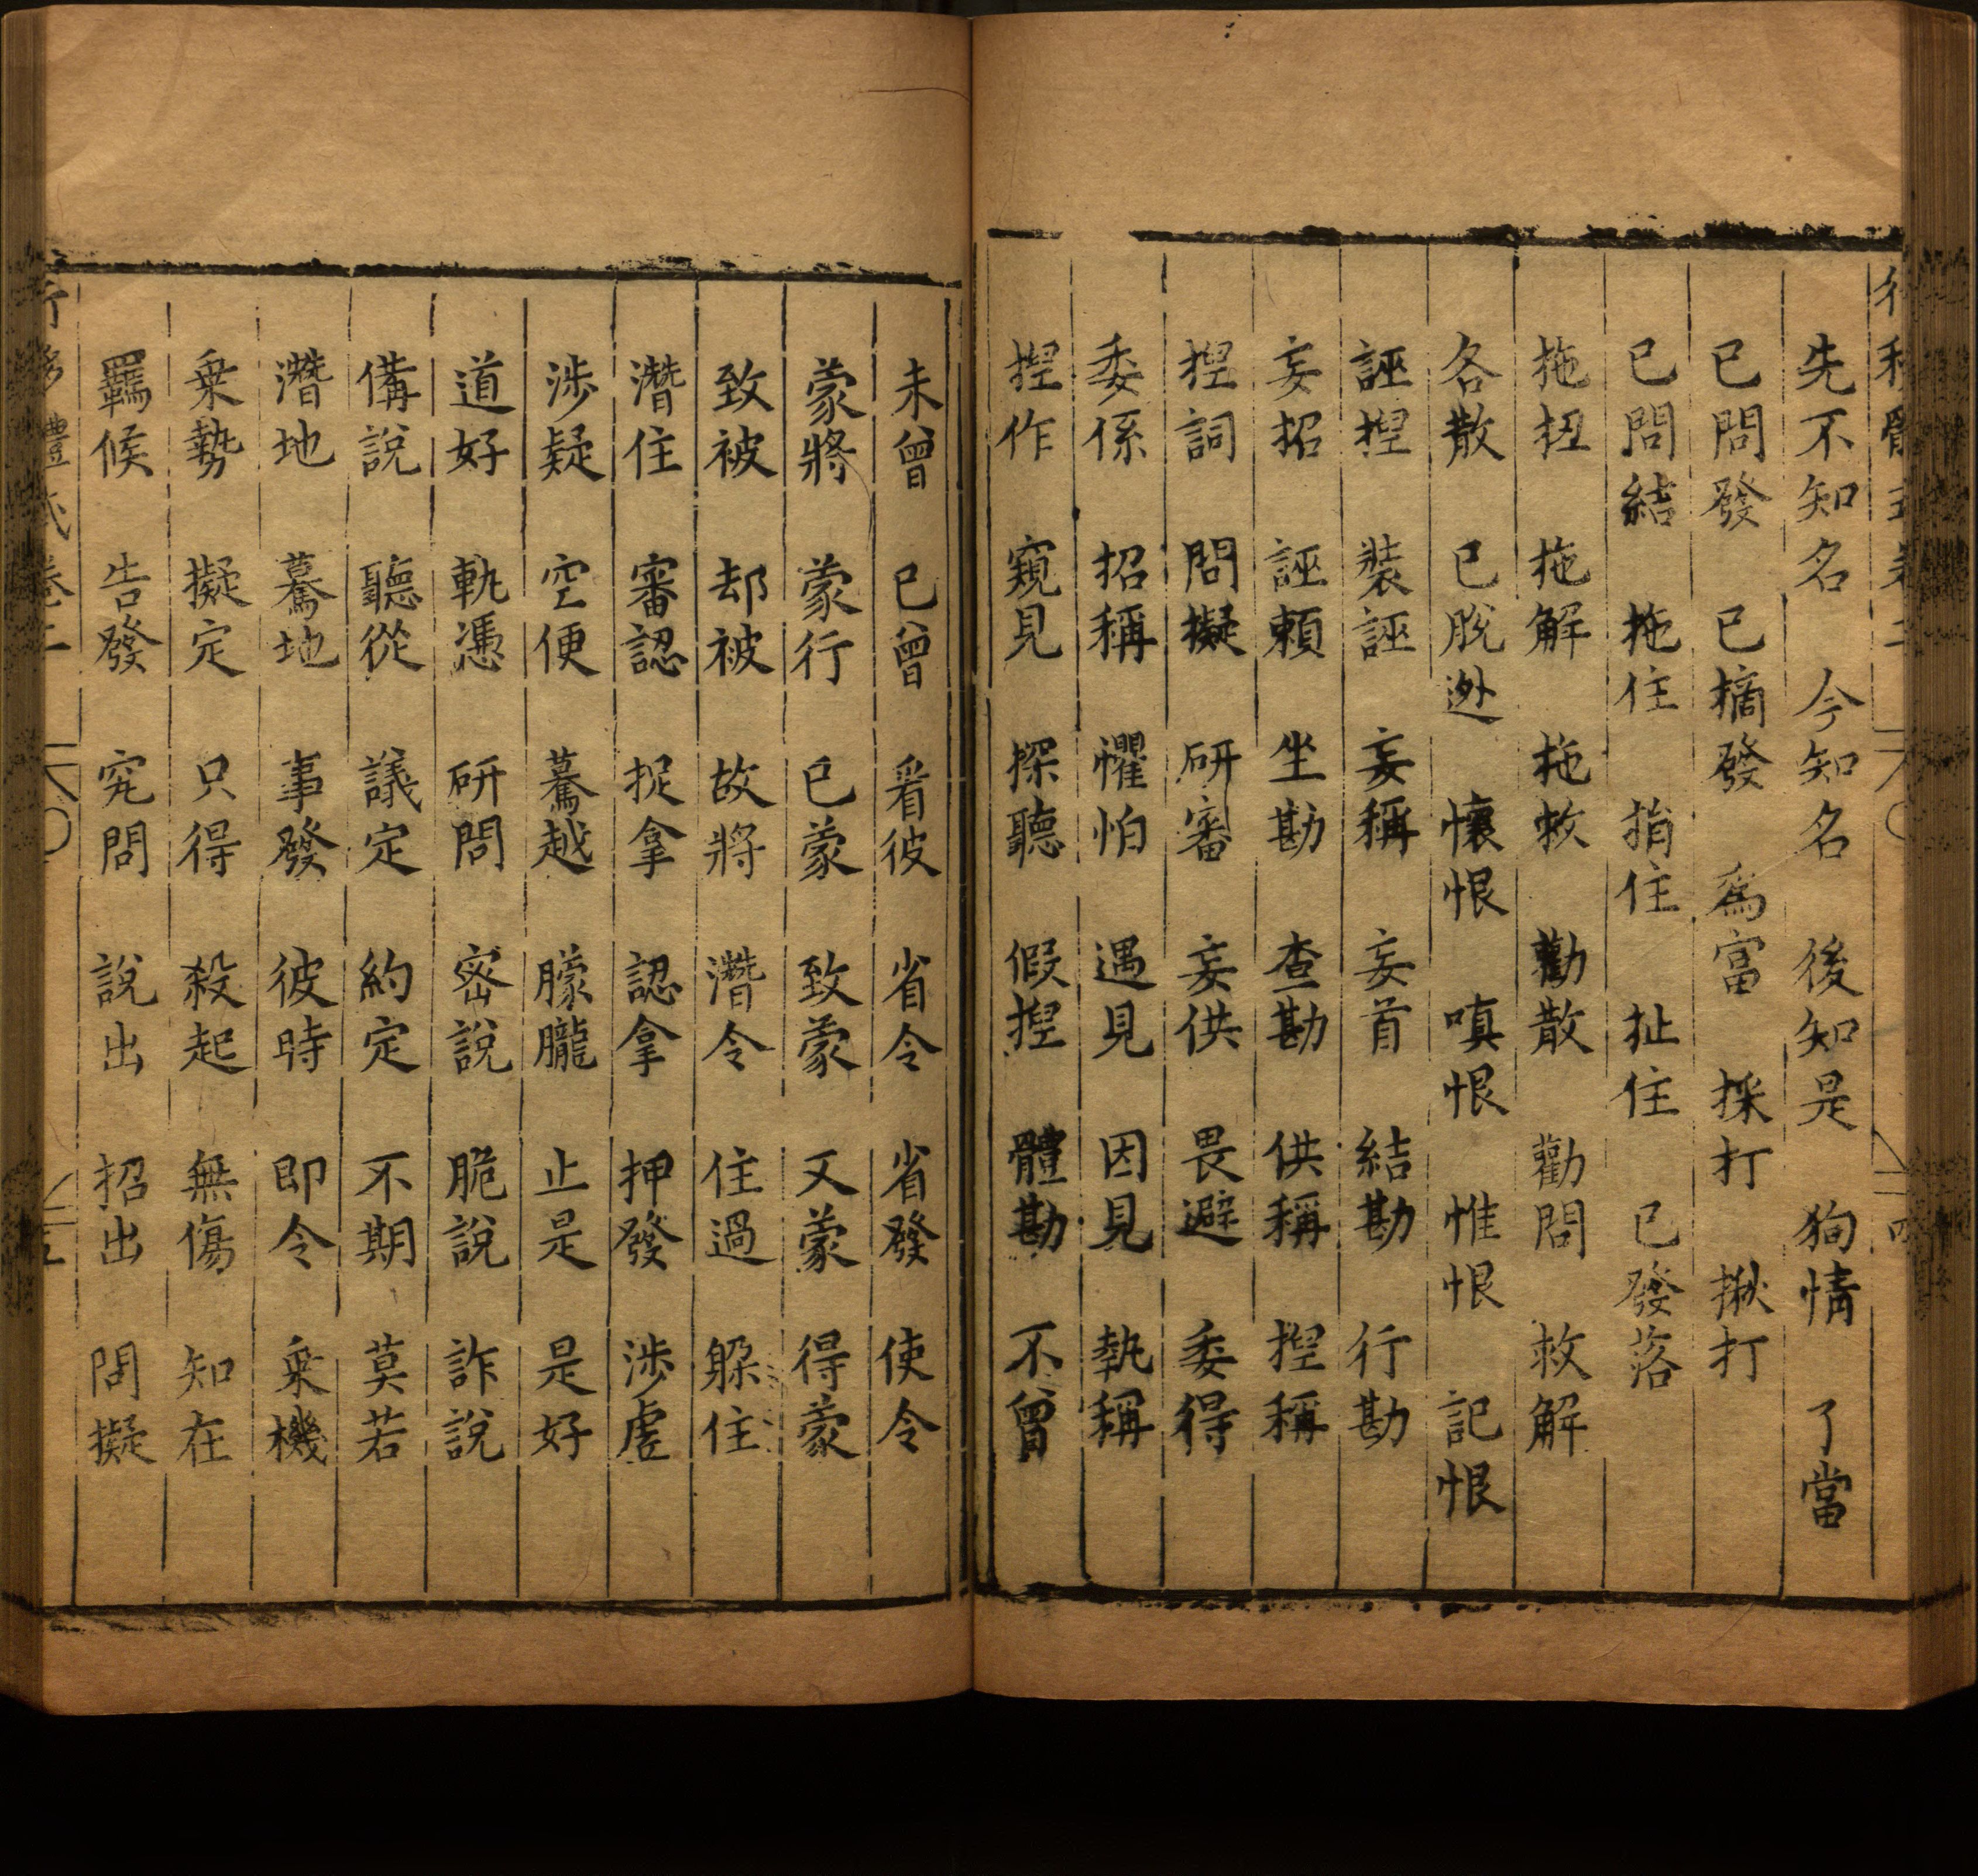 先不知名　今知名　後知是　狥情　了當
已問發　已摘發　為富　採打　揪打
已問結　拖住　揹住　扯住　已發落
拖扭　拖解　拖救　勸散　勸問　救解
各散　已脫迯　懷恨　嗔恨　惟恨　記恨
誣揑　裝誣　妄稱　妄首　結勘　行勘
妄招　誣賴　坐勘　查勘　供稱　揑稱
揑詞　問擬　研審　妄供　畏避　委得
委係　招稱　懼怕　遇見　因見　執稱
揑作　窺見　探聽　假揑　體勘　不曾
未曾　已曾　看彼　省令　省發　使令
蒙將　蒙行　已蒙　致蒙　又蒙　得蒙
致被　却被　故將　潛令　住過　躲住
潛住　審認　捉拿　認拿　押發　涉虛
涉疑　空便　驀越　朦朧　止是　是好
道好　執憑　研問　密說　脆說　詐說
備說　聽從　議定　約定　不期　莫若
潛地　驀地　事發　彼時　即令　乘機
乘勢　擬定　只得　殺起　無傷　知在
羈候　告發　究問　說出　招出　問擬
行移體式卷二